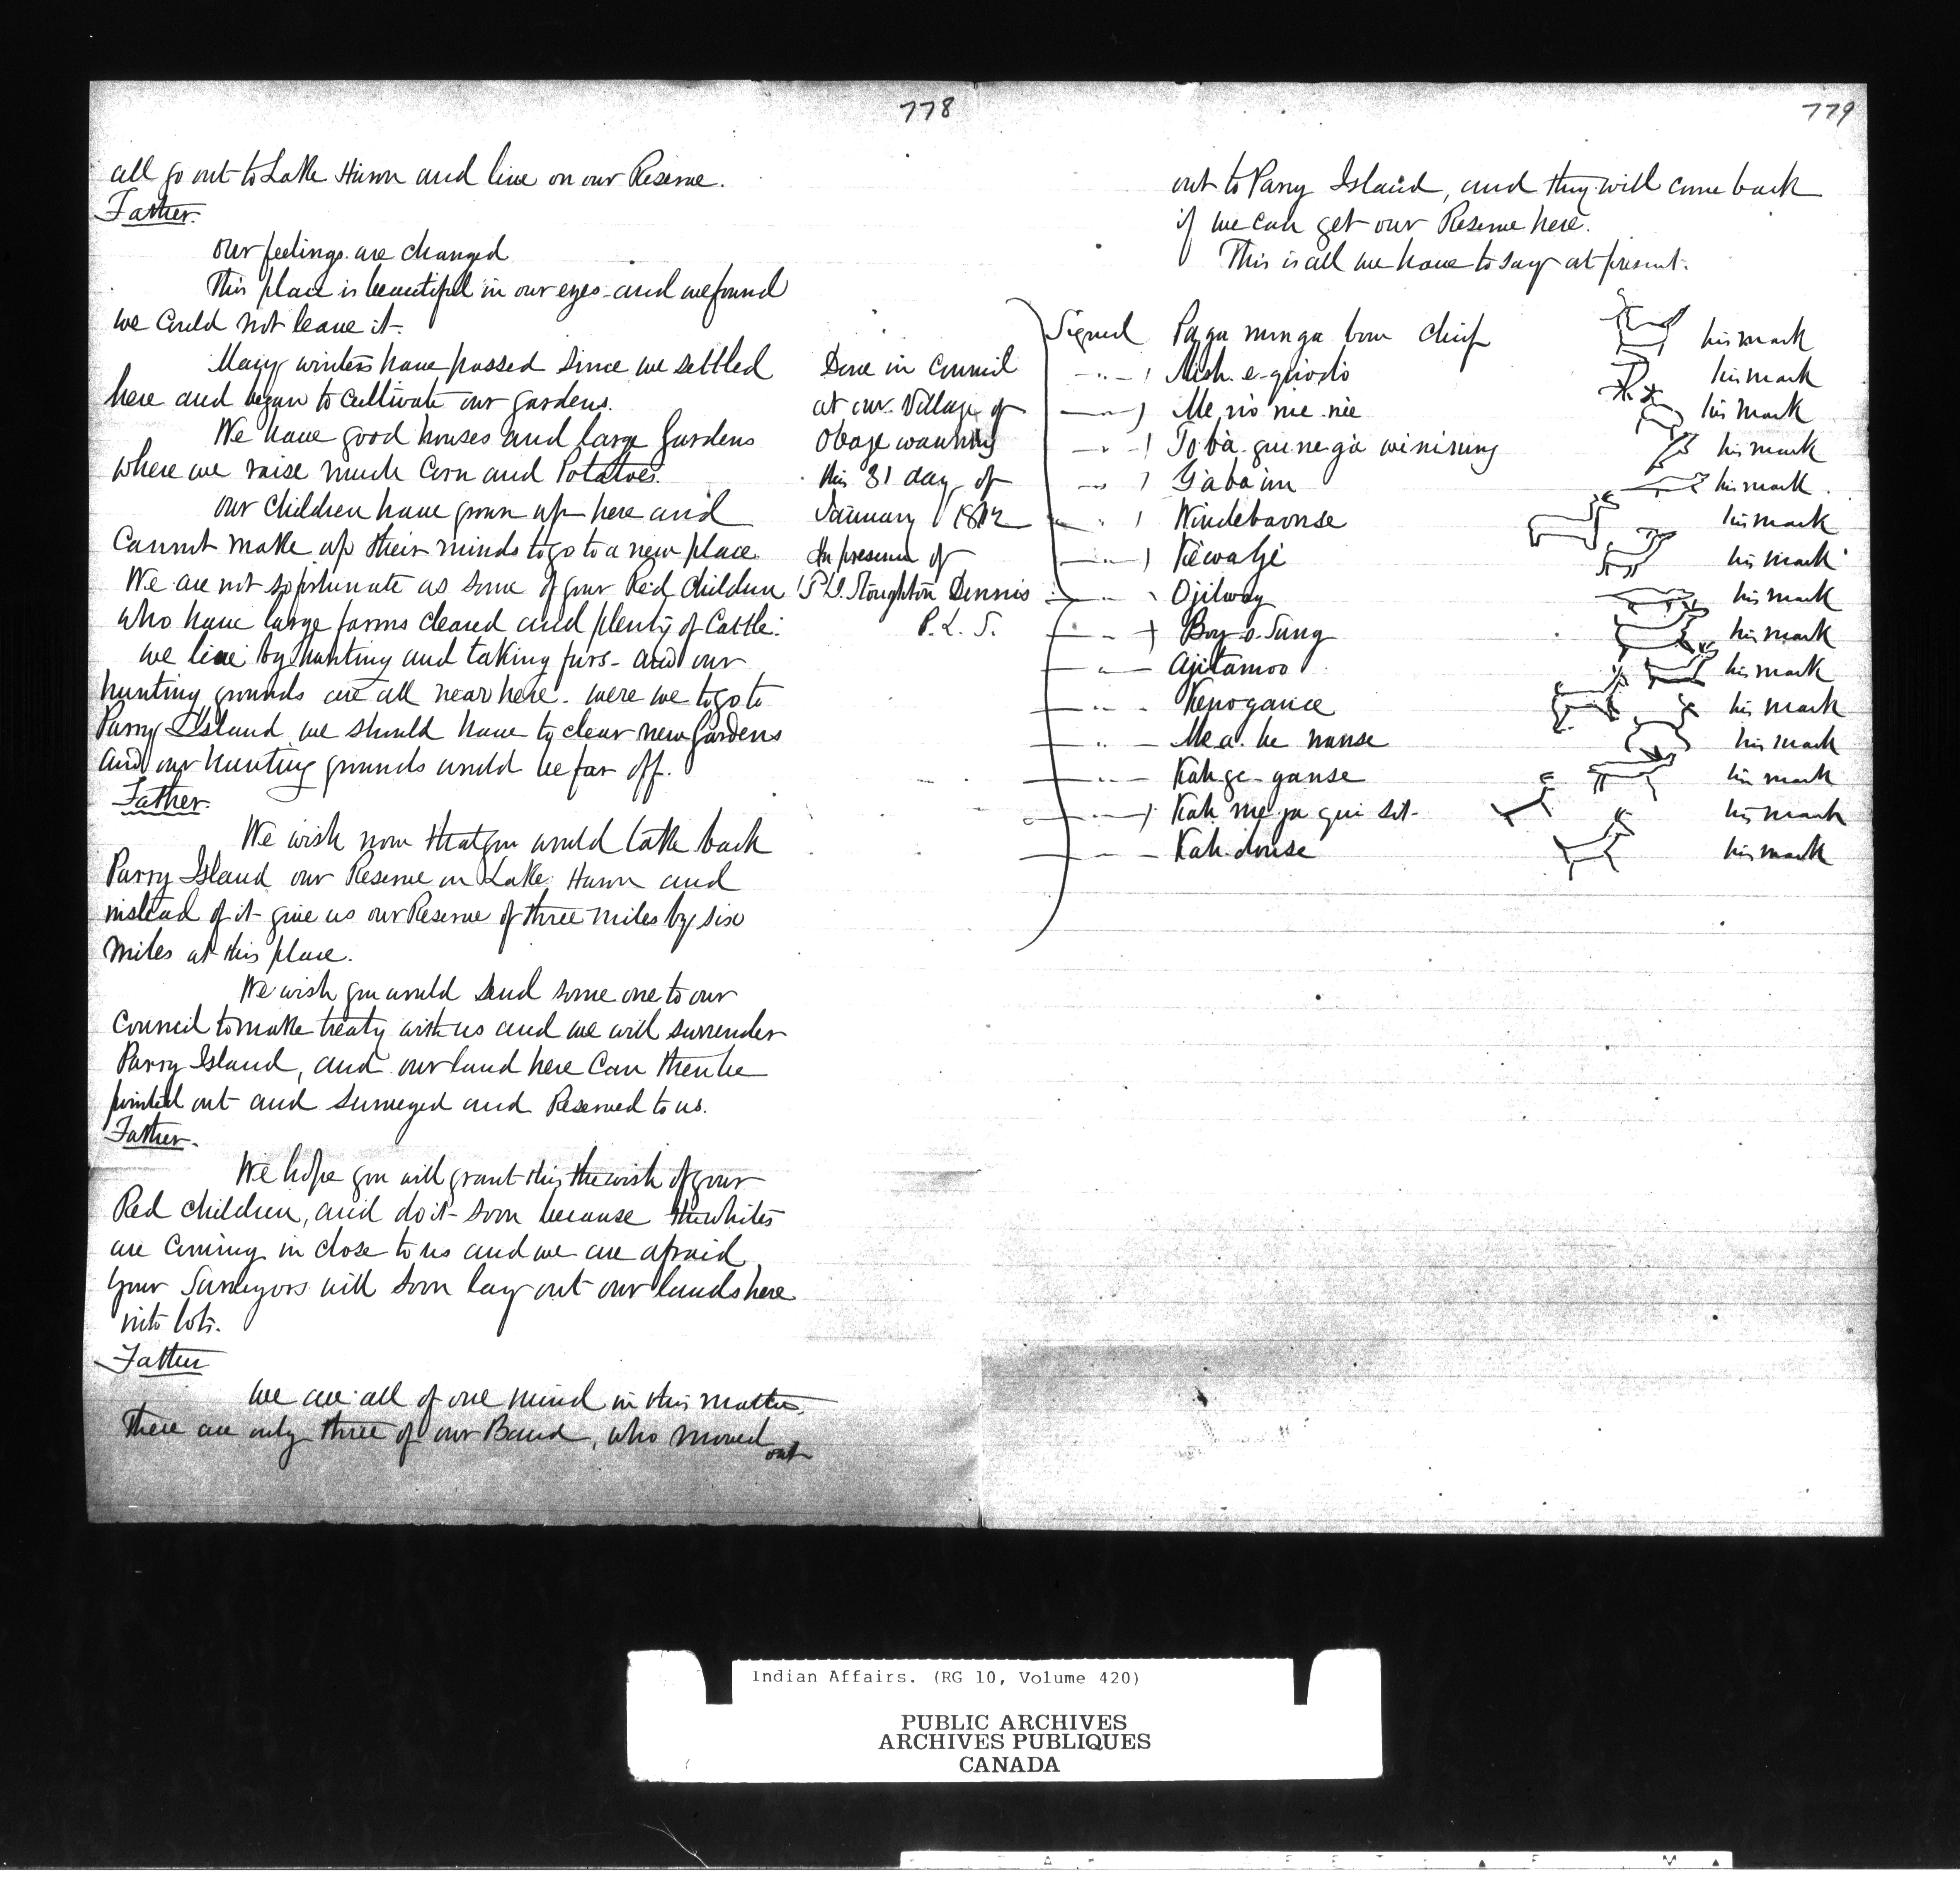 778
all go out to Lake Huron and live on our Reserve.
Father.
Our feelings are changed
This place is beautiful in our eyes and we found
we could not leave it.
Many winters have passed since we settled
here and began to cultivate our gardens.
We have good houses and large Gardens
where we raise much Corn and Potatoes.
Our children have grown up here and
Cannot make up their minds to go to a new place.
We are not so fortunate as some of your Red Children
who have large farms cleared and plenty of Cattle.
we live by hunting and taking furs - and our
hunting grounds are all near here. were we to go to
Parry Island we should have to clear new Gardens
and our hunting grounds would be far off.
Father.
We wish now that you would take back
Parry Island our Reserve on Lake Huron and
instead of it give us our Reserve of three miles by six
miles at this place.
We wish you would send some one to our
Council to make treaty with us and we will surrender
Parry Island, and our land here Can then be
pointed out and surveyed and Reserved to us.
Father.
We hope you will grant this the wish of your
Red children, and do it soon because the whites
are Coming in close to us and we are afraid
your Surveyors will soon lay out our lands here
into lots.
Father
We are all of one mind in this matter.
There are only three of our Band, who moved
out
Done in Council
at our Village of
Obage wanning
this 31 day of
January
In presence of
Stoughton Dennis
P. L. S.
779
out to Parry Island, and they will come back
if we can get our Reserve here.
This is all we have to say at present.
Signed Paga munga bow chief his mark
" Mish.e.quodo his mark
" Me no me nie his mark
" his mark
" Gabaim his mark
" Windebaunse his mark
" Kewage his mark
" Ojibway his mark
" his mark
" Ajitamoo his mark
" Kenogance his mark
" Me a. be nunse his mark
" Kah ge - ganse his mark
" Kah me ja qui sit his mark
" Kah donse his mark
Indian Affairs. (RG 10, Volume 420)
PUBLIC ARCHIVES
ARCHIVES PUBLIQUES
CANADA